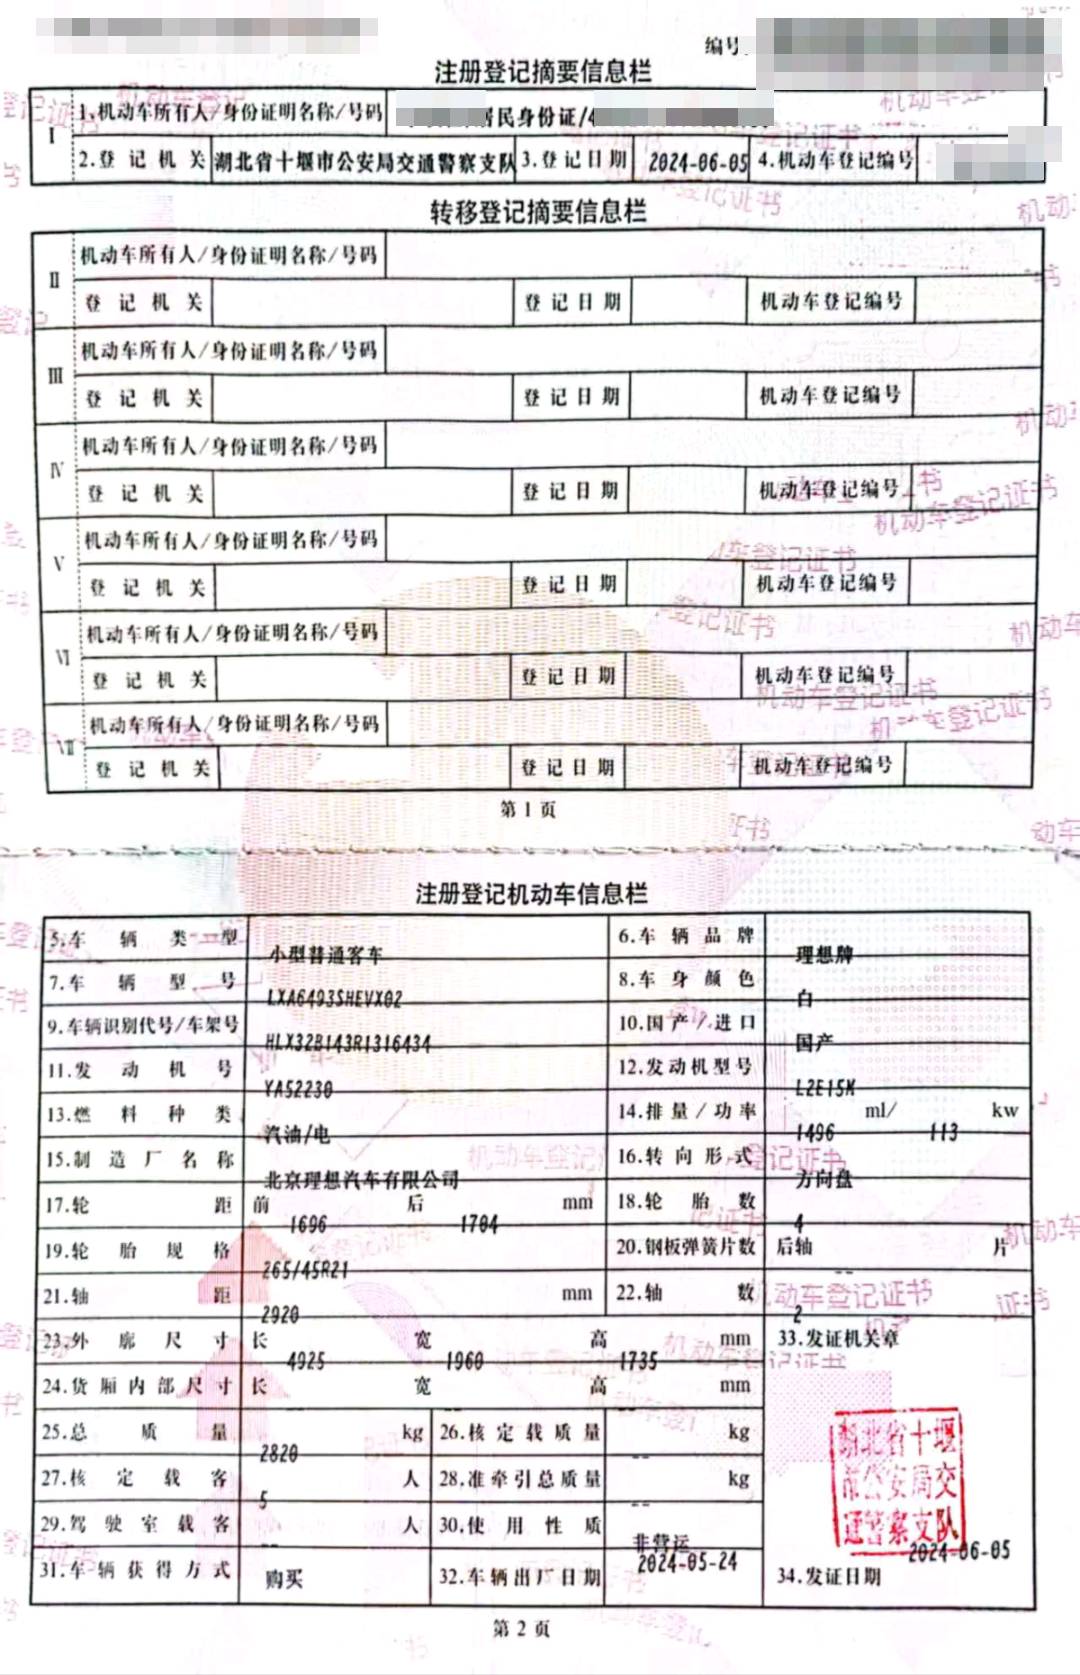 编号
注册登记摘要信息栏
I 1.机动车所有人/身份证明名称/号码 居民身份证/
2.登记机关 湖北省十堰市公安局交通警察支队 3.登记日期 2024-06-05 4.机动车登记编号
转移登记摘要信息栏
II 机动车所有人/身份证明名称/号码
登记机关 登记日期 机动车登记编号
III 机动车所有人/身份证明名称/号码
登记机关 登记日期 机动车登记编号
IV 机动车所有人/身份证明名称/号码
登记机关 登记日期 机动车登记编号
V 机动车所有人/身份证明名称/号码
登记机关 登记日期 机动车登记编号
VI 机动车所有人/身份证明名称/号码
登记机关 登记日期 机动车登记编号
VII 机动车所有人/身份证明名称/号码
登记机关 登记日期 机动车登记编号
第1页
注册登记机动车信息栏
5.车辆类型 小型普通客车 6.车辆品牌 理想牌
7.车辆型号 LXA6493SHEVX02 8.车身颜色 白
9.车辆识别代号/车架号 HLX32B143R1316434 10.国产/进口 国产
11.发动机号 YA52230 12.发动机型号 L2E15M
13.燃料种类 汽油/电 14.排量/功率 1496 ml/ 113 kw
15.制造厂名称 北京理想汽车有限公司 16.转向形式 方向盘
17.轮距 前 1696 后 1704 mm 18.轮胎数 4
19.轮胎规格 265/45R21 20.钢板弹簧片数 后轴 -- 片
21.轴距 2920 mm 22.轴数 2
23.外廓尺寸 长 4925 宽 1960 高 1735 mm 33.发证机关章
24.货厢内部尺寸 长 宽 高 mm
25.总质量 2820 kg 26.核定载质量 -- kg
27.核定载客 5 人 28.准牵引总质量 -- kg
湖北省十堰
市公安局交
通警察支队
29.驾驶室载客 -- 人 30.使用性质 非营运
31.车辆获得方式 购买 32.车辆出厂日期 2024-05-24 34.发证日期 2024-06-05
第2页